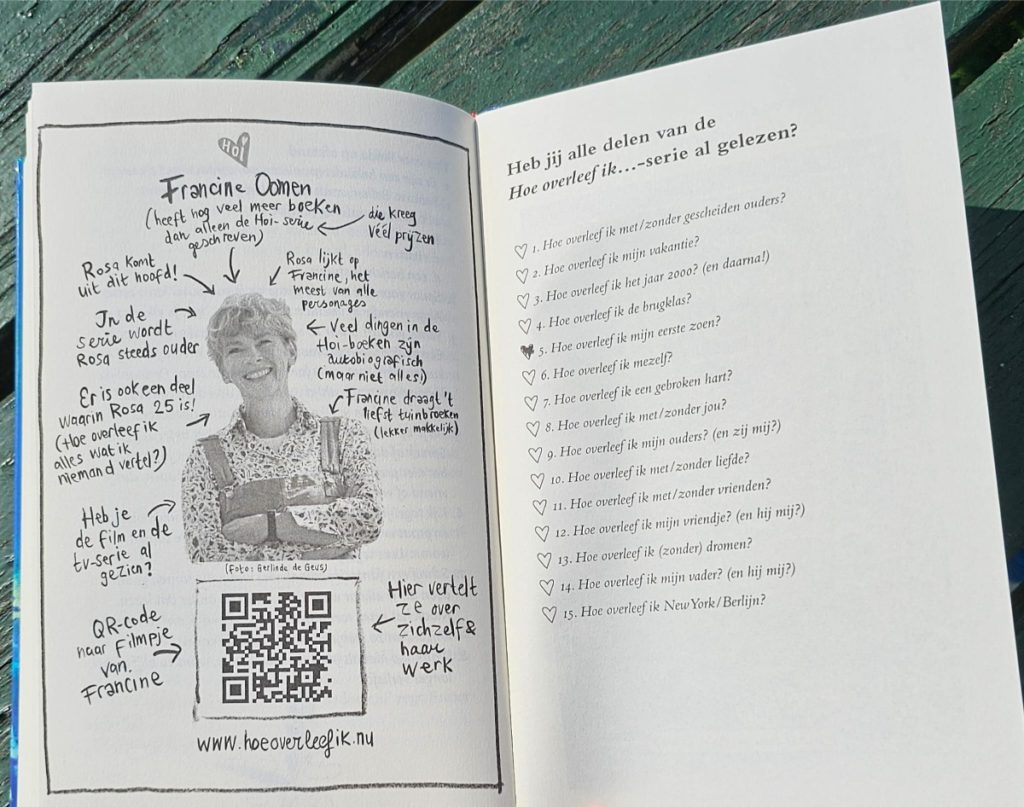 Hoi
Francine Oomen
(heeft nog veel meer boeken
dan alleen de Hoi-serie
geschreven)
die kreeg
véél prijzen
Rosa komt
uit dit hoofd!
Rosa lijkt op
Francine, het
meest van alle
personages
In de
serie wordt
Rosa steeds ouder
Veel dingen in de
Hoi-boeken zijn
autobiografisch
(maar niet alles!)
Er is ook een deel
waarin Rosa 25 is!
(Hoe overleef ik
alles wat ik
niemand vertel?)
Francine draagt 't
liefst tuinbroeken
(lekker makkelijk)
Heb je
de film en de
tv-serie al
gezien?
(Foto: Gerlinde de Geus)
QR-code
naar filmpje
van
Francine
Hier vertelt
ze over
zichzelf &
haar
werk
www.hoeoverleefik.nu
Heb jij alle delen van de
Hoe overleef ik...-serie al gelezen?
1. Hoe overleef ik met/zonder gescheiden ouders?
2. Hoe overleef ik mijn vakantie?
3. Hoe overleef ik het jaar 2000? (en daarna!)
4. Hoe overleef ik de brugklas?
5. Hoe overleef ik mijn eerste zoen?
6. Hoe overleef ik mezelf?
7. Hoe overleef ik een gebroken hart?
8. Hoe overleef ik met/zonder jou?
9. Hoe overleef ik mijn ouders? (en zij mij?)
10. Hoe overleef ik met/zonder liefde?
11. Hoe overleef ik met/zonder vrienden?
12. Hoe overleef ik mijn vriendje? (en hij mij?)
13. Hoe overleef ik (zonder) dromen?
14. Hoe overleef ik mijn vader? (en hij mij?)
15. Hoe overleef ik New York/Berlijn?